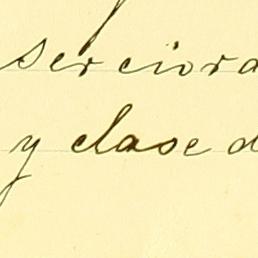 ser ciora
y clase d